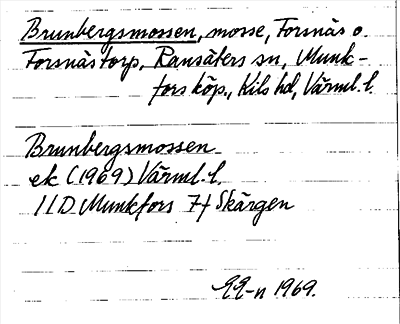 Brunbergsmossen, mosse, Forsnäs o.
Forsnästorp, Ransäters sn, Munk-
fors köp., Kils hd, Värml. l.
Brunbergsmossen
ek (1969) Värml. l.
11D Munkfors 7f Skärgen
1969.